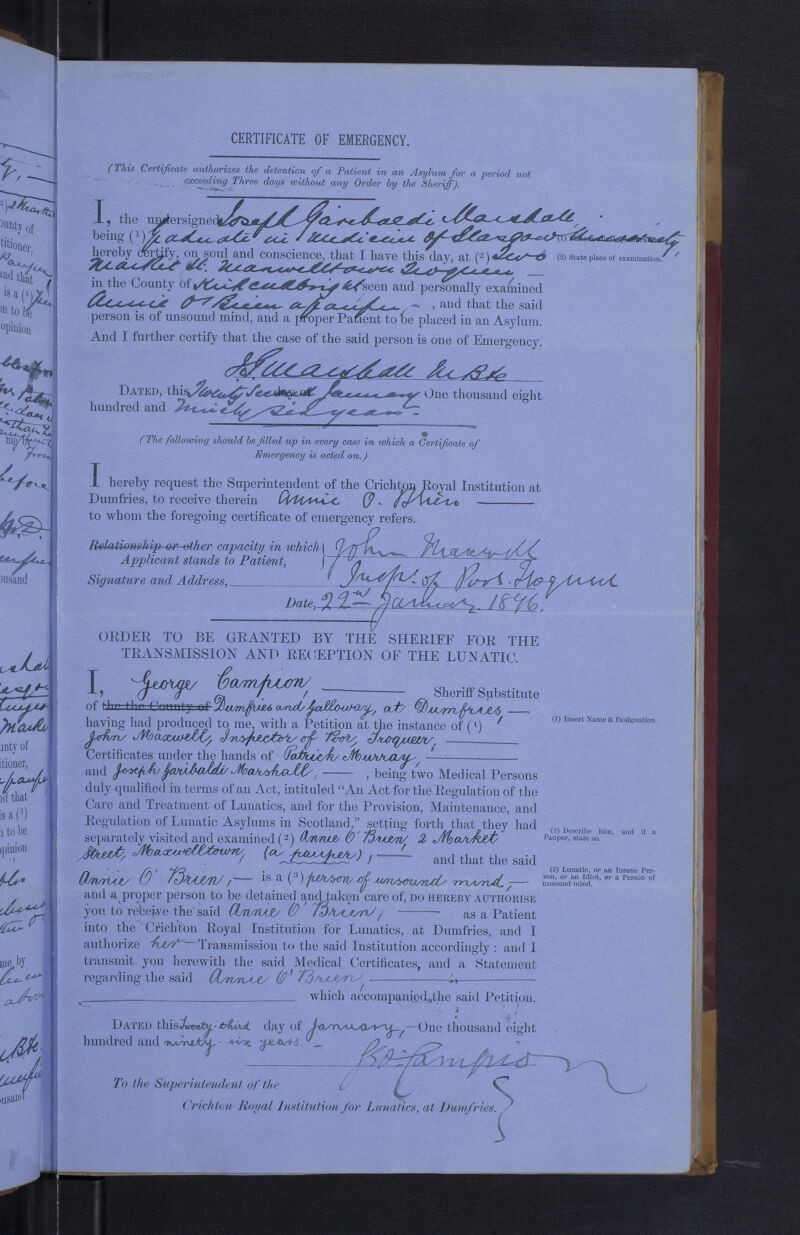 CERTIFICATE OF EMERGENCY.
(This Certificate authorizes the detention of a Patient in an Asylum for a period not
exceeding Three days without any Order by the Sheriff).
I, the undersigned Joseph Garibaldi Marshall
being (1) Graduate in Medicine of Glasgow University,
hereby certify, on soul and conscience, that I have this day, at (2) Two
(2) State place of examination.
Market St. Maxwelltown Troqueer
in the County of Kirkcudbright seen and personally examined
Annie O'Brien a pauper, — , and that the said
person is of unsound mind, and a proper Patient to be placed in an Asylum.
And I further certify that the case of the said person is one of Emergency.
JG Marshall M.B &c
DATED, this Twenty Second January One thousand eight
hundred and Ninety six years.
(The following should be filled up in every case in which a Certificate of
Emergency is acted on.)
I hereby request the Superintendent of the Crichton Royal Institution at
Dumfries, to receive therein Annie O. Brien
to whom the foregoing certificate of emergency refers.
Relationship or other capacity in which
Applicant stands to Patient,
John Maxwell
Signature and Address, Inspr. of Poor. Troqueer
Date, 22nd January 1896.
ORDER TO BE GRANTED BY THE SHERIFF FOR THE
TRANSMISSION AND RECEPTION OF THE LUNATIC.
I, George Campion, Sheriff Substitute
of the the County of Dumfries and Galloway, at Dumfries —
having had produced to me, with a Petition at the instance of (1)
(1) Insert Name & Designation
John Maxwell, Inspector of Poor, Troqueer,
Certificates under the hands of Patrick Murray,
and Joseph Garibaldi Marshall, — , being two Medical Persons
duly qualified in terms of an Act, intituled “An Act for the Regulation of the
Care and Treatment of Lunatics, and for the Provision, Maintenance, and
Regulation of Lunatic Asylums in Scotland,” setting forth that they had
separately visited and examined (2) Annie O'Brien, 2 Market
(2) Describe him, and if a
Pauper, state so.
Street, Maxwelltown, (a pauper), — and that the said
Annie O'Brien, — is a (3) person of unsound mind, —
(3) Lunatic, or an Insane Per-
son, or an Idiot, or a Person of
unsound mind.
and a proper person to be detained and taken care of, DO HEREBY AUTHORISE
you to receive the said Annie O'Brien, — as a Patient
into the Crichton Royal Institution for Lunatics, at Dumfries, and I
authorize her — Transmission to the said Institution accordingly : and I
transmit you herewith the said Medical Certificates, and a Statement
regarding the said Annie O'Brien,
which accompanied the said Petition.
DATED this Twenty-third day of January, — One thousand eight
hundred and ninety-six years. —
Geo. Campion
To the Superintendent of the
Crichton Royal Institution for Lunatics, at Dumfries.